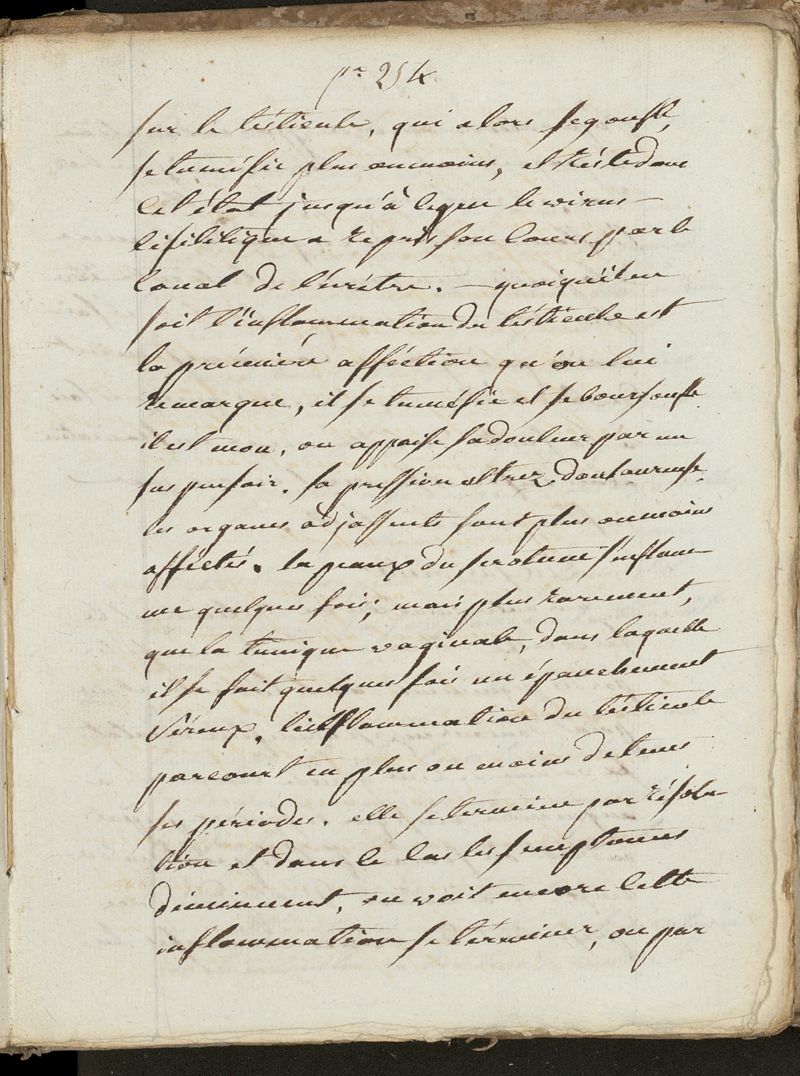 pe 254
sur le testicule, qui alors se gonfle,
se tuméfie plus ou moins, et reste dans
cet état jusqu'à ceque le virus
sifilitique a repris son cours par le
canal de l'urétre. — quoiqu'il en
soit l'inflammation du testicule est
la prémière afféction qu'on lui
remarque, il se tuméfie et se boursoufle
il est mou, on appaise sa douleur par un
suspensoir. sa pression est trez douloureuse,
les organes adjassents sont plus ou moins
afféctés. la peaux du scrotum s'enflam
me quelques fois; mais plus rarement,
que la tunique vaginale, dans laquelle
il se fait quelques fois un épanchement
séreux, l'inflammation du testicule
parcourt en plus ou moins de tems
ses périodes. elle se termine par résolu
tion et dans le cas les simptomes
diminuent, on voit encore cette
inflammation se términer, ou par